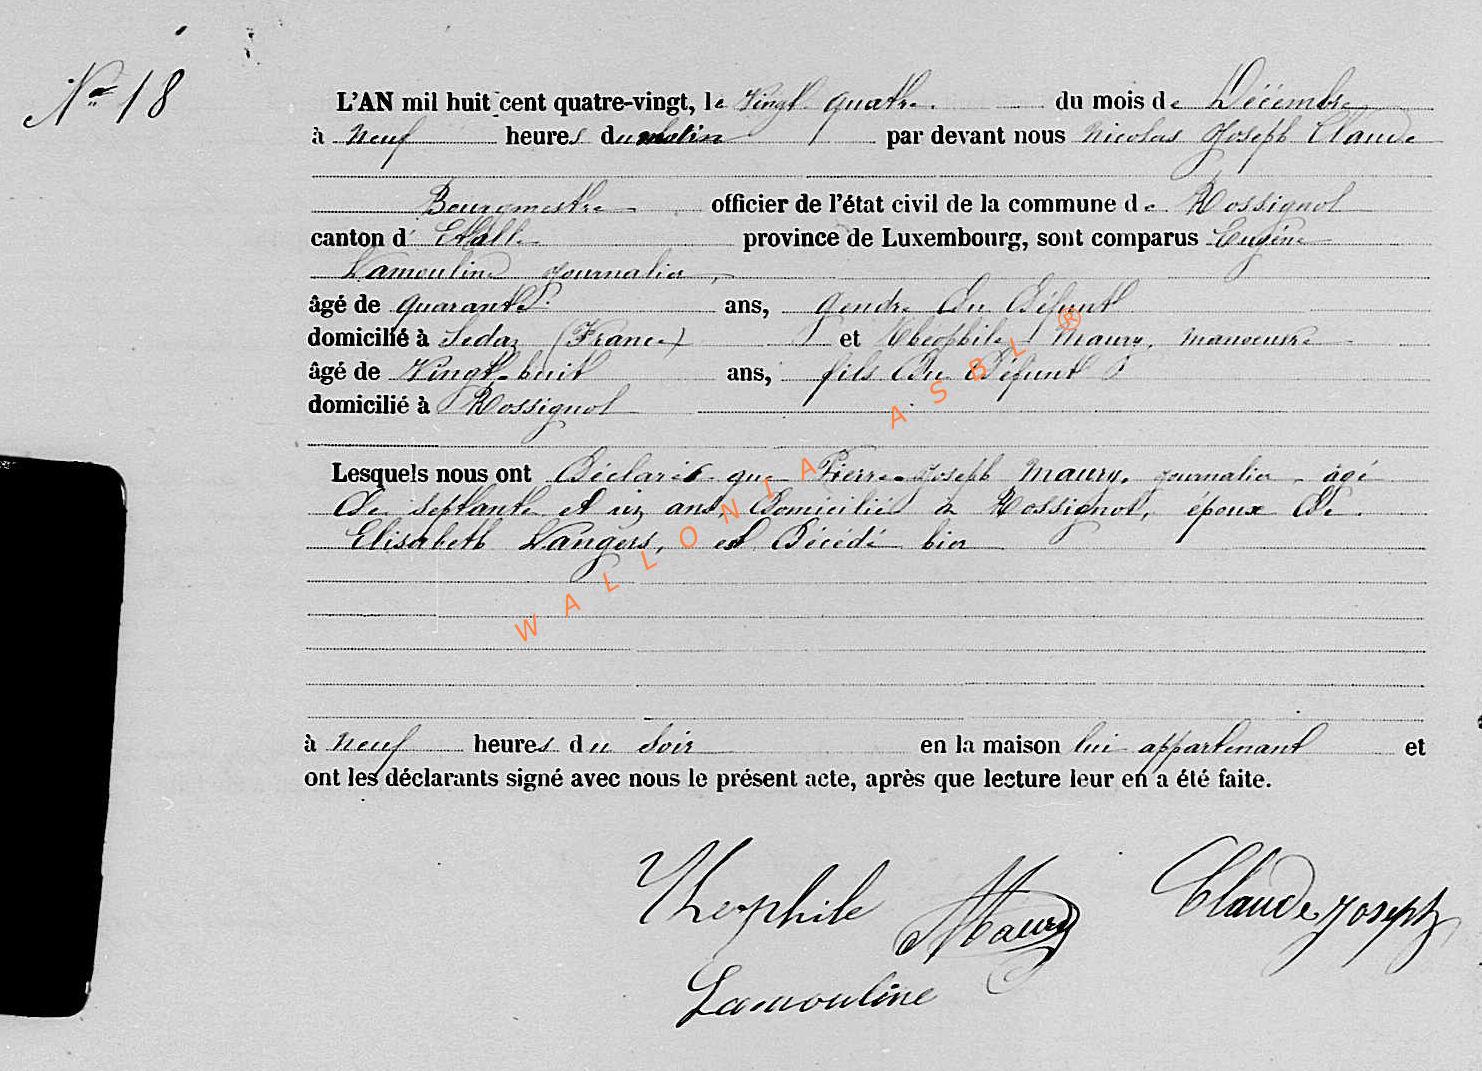 No 18
L'AN mil huit cent quatre-vingt, le Vingt quatre du mois de Décembre
à Neuf heures du matin par devant nous Nicolas Joseph Claude
Bourgmestre officier de l'état civil de la commune de Rossignol
canton d' Etalle province de Luxembourg, sont comparus Eugène
Lamouline journalier,
âgé de quarante ans, gendre du défunt
domicilié à Sedan (France) et Théophile Maury, manoeuvre
âgé de Vingt-huit ans, fils du défunt
domicilié à Rossignol
Lesquels nous ont Déclaré que Pierre-Joseph Maury, journalier, âgé
de septante et six ans, Domicilié à Rossignol, époux de
Elisabeth Wangers, est Décédé hier
à Neuf heures du Soir en la maison lui appartenant et
ont les déclarants signé avec nous le présent acte, après que lecture leur en a été faite.
Theophile Maury Claude Joseph
Lamouline
WALLONIA ASBL ®